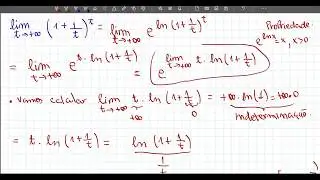 lim t→+∞ (1+1/t)^t = lim t→+∞ e^{ln(1+1/t)^t} Propriedade:
e^{lnx}=x, x>0
= lim t→+∞ e^{t.ln(1+1/t)} = e^{lim t→+∞ t.ln(1+1/t)}
• vamos calcular lim t→+∞ t.ln(1+1/t) = +∞.ln(1)=+∞.0
+∞ 0 indeterminação
= t.ln(1+1/t) = ln(1+1/t)
1/t